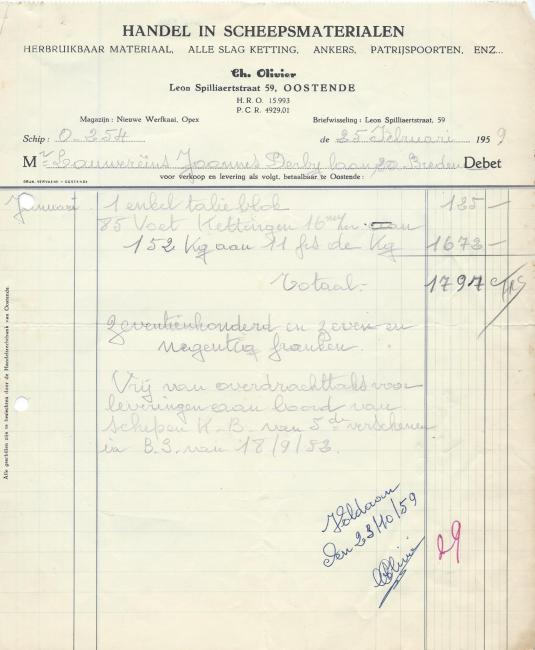 HANDEL IN SCHEEPSMATERIALEN
HERBRUIKBAAR MATERIAAL, ALLE SLAG KETTING, ANKERS, PATRIJSPOORTEN, ENZ...
Ch. Olivier
Leon Spilliaertstraat 59, OOSTENDE
H.R.O. 15.993
P.C.R. 4929.01
Magazijn : Nieuwe Werfkaai, Opex Briefwisseling : Leon Spilliaertstraat, 59
Schip : O-254 de 25 Februari 1959
Mr Lauwereins Joannes Derby laan 20 Bredene Debet
DRUK. VERVAECK - OOSTENDE
voor verkoop en levering als volgt, betaalbaar te Oostende :
Januari 1 enkel talie blok 125 —
85 Voet Kettingen 16 m/m
152 Kg aan 11 frs de Kg 1672 —
Totaal 1797
zeventienhonderd en zeven en
negentig franken.
Vrij van overdrachttaks voor
leveringen aan boord van
schepen K-B- van 5de verschenen
in B.S. van 18/9/53.
Voldaan
den 23/10/59
Olivier
29
Alle geschillen zijn te beslechten door de Handelsrechtbank van Oostende